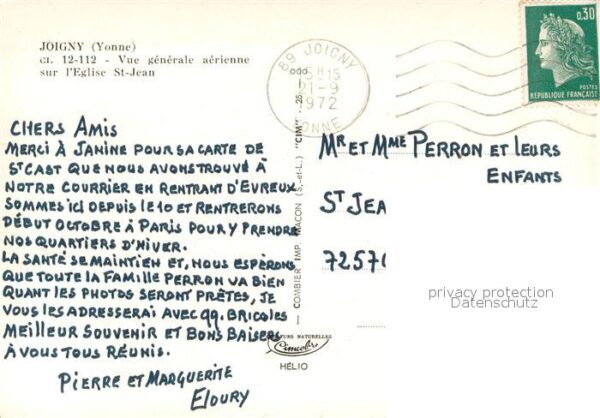 JOIGNY (Yonne)
CL. 12-112 - Vue générale aérienne
sur l'Eglise St-Jean
89 JOIGNY
15H15
21-9
1972
YONNE
0,30
POSTES
REPUBLIQUE FRANÇAISE
CHERS AMIS
MERCI À JANINE POUR SA CARTE DE
ST CAST QUE NOUS AVONS TROUVÉ À
NOTRE COURRIER EN RENTRANT D'EVREUX
SOMMES ICI DEPUIS LE 10 ET RENTRERONS
DÉBUT OCTOBRE À PARIS POUR Y PRENDRE
NOS QUARTIERS D'HIVER.
LA SANTÉ SE MAINTIEN ET, NOUS ESPÈRONS
QUE TOUTE LA FAMILLE PERRON VA BIEN
QUANT LES PHOTOS SERONT PRÊTES, JE
VOUS LES ADRESSERAI AVEC QQ. BRICOLES
MEILLEUR SOUVENIR ET BONS BAISERS
À VOUS TOUS RÉUNIS.
PIERRE ET MARGUERITE
ELOURY
COMBIER IMP. MACON (S.-et-L.) "CIM"
NATURELLES
Cimcolor
HÉLIO
MR ET MME PERRON ET LEURS
ENFANTS
ST JEA
7257
privacy protection
Datenschutz